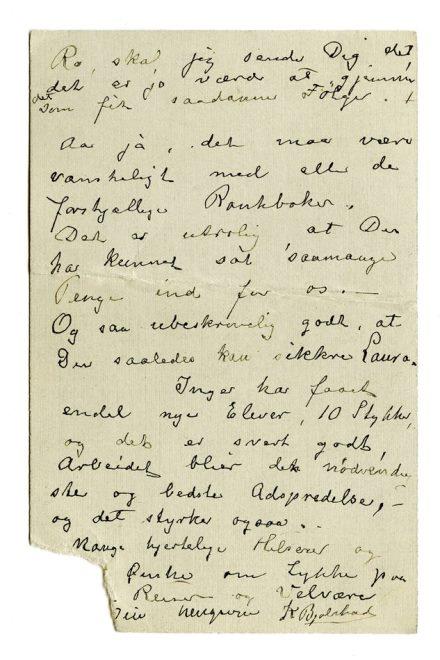 Ro, skal jeg sende Dig det
det er jo værd at gjemme
det
som fik saadanne Følger.
Aa ja, det maa være
vanskeligt med alle de
forskjællige Bankbøker.
Det er utrolig at Du
har kunnet sat saamange
Penge ind for os. —
Og saa ubeskrivelig godt, at
Du saaledes kan sikkre Laura.
Inger har faaet
endel nye Elever, 10 Stykker,
og det er svert godt,
Arbeidet blier det nødvendig
ste og bedste Adspredelse, —
og det styrker ogsaa. .
Mange hjertelige Hilsener og
Ønske om Lykke paa
Reisen og Velvære
Din hengivne K Bjølstad